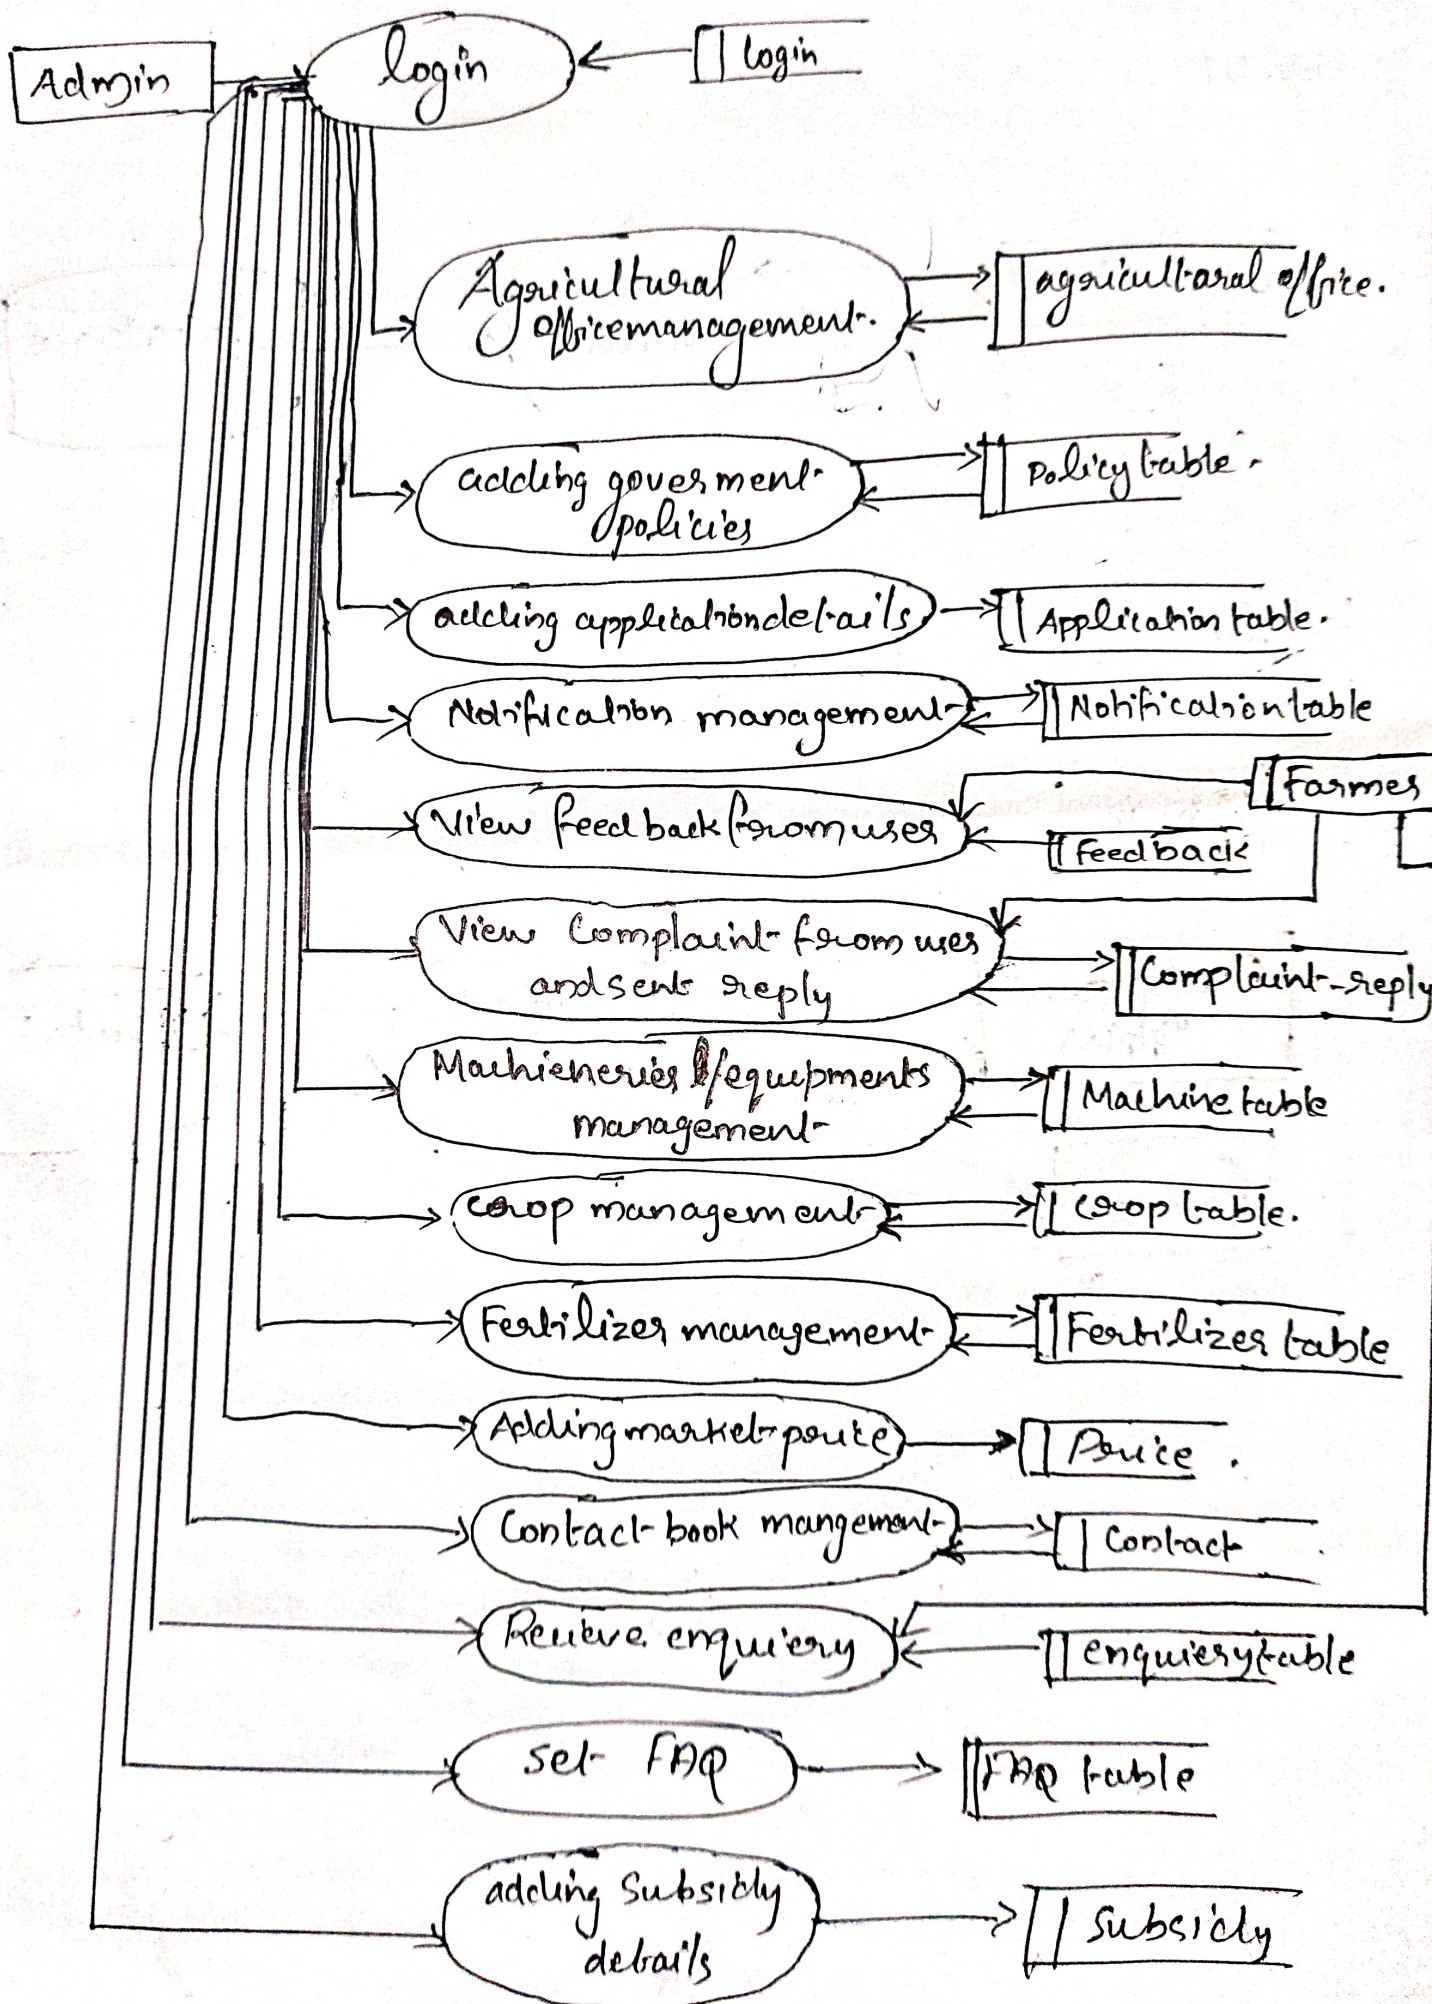 Admin
login
login
Agricultural
officemanagement.
agricultaral office.
adding goverment
policies
policy table.
adding applicationdetails
Application table.
Notification management
Notification table
View feedback from user
Farmer
Feedback
View Complaint from user
and sent reply
Complaint-reply
Machieneries /equipments
management
Machine table
crop management
crop table.
Fertilizer management
Fertilizer table
Adding market price
Price.
Contact book mangement
Contact
Recieve enquiery
enquiery table
set FAQ
FAQ table
adding Subsidy
details
Subsidy